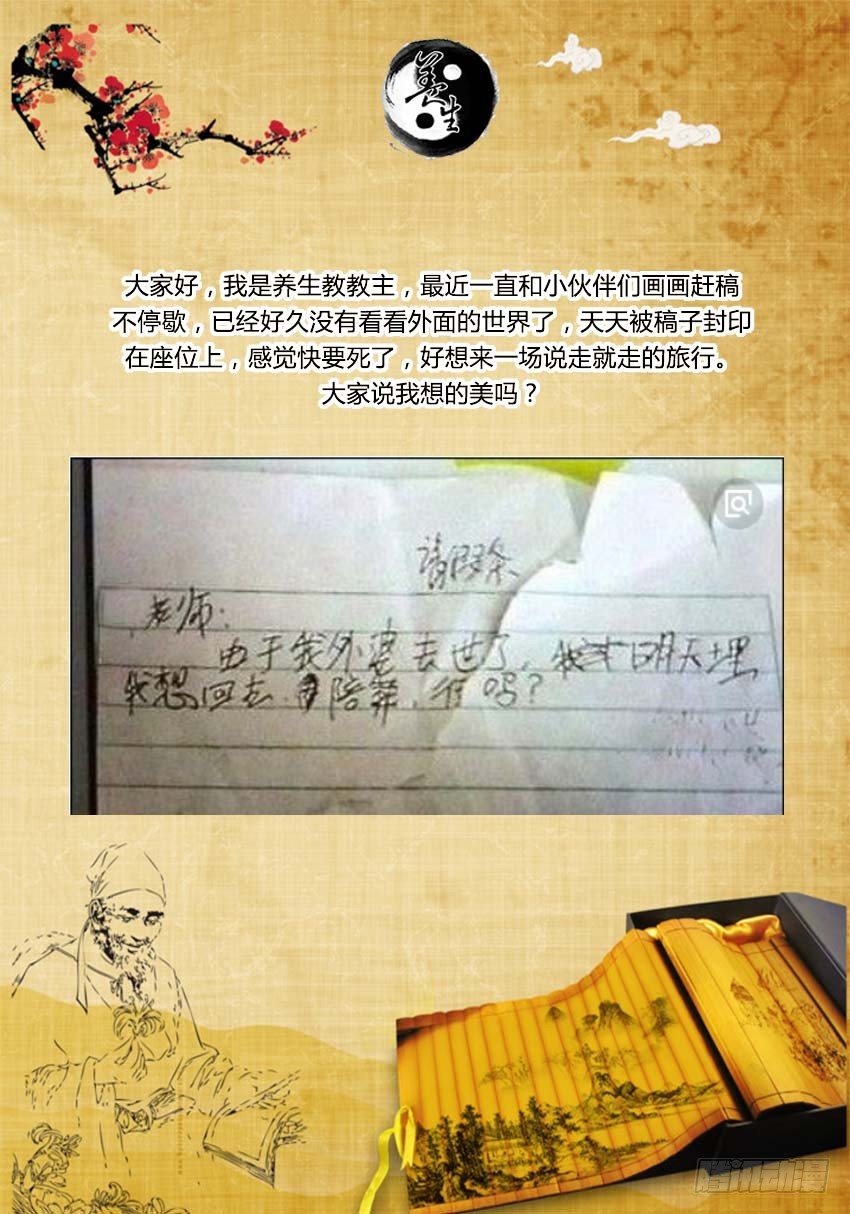 養生
大家好，我是养生教教主，最近一直和小伙伴们画画赶稿
不停歇，已经好久没有看看外面的世界了，天天被稿子封印
在座位上，感觉快要死了，好想来一场说走就走的旅行。
大家说我想的美吗？
请假条
老师：
由于我外婆去世了，明天埋
我想回去陪葬，行吗？
腾讯动漫